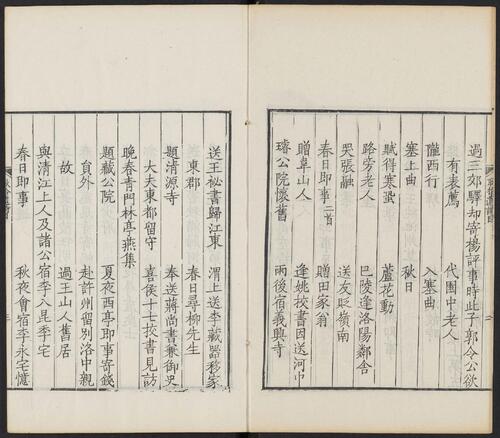 過三郊驛却寄楊評事時此子郭令公欲
有表薦　代園中老人
隴西行　入塞曲
塞上曲　秋日
賦得寒蛩　蘆花動
路旁老人　巴陵逢洛陽鄰舍
哭張融　送友貶嶺南
春日即事二首　贈田家翁
贈韋山人　逢姚校書因送河中
璿公院懷舊　雨後宿義興寺
送王秘書歸江東　渭上送李藏器移家
東郡　春日尋柳先生
題清源寺　奉送蔣尚書兼御史
大夫東都留守　喜侯十七校書見訪
晚春青門林亭燕集
題藏公院　夏夜西亭即事寄錢
員外　赴許州留別洛中親
故　過王山人舊居
與清江上人及諸公宿李八昆季宅
春日即事　秋夜會宿李永宅憶